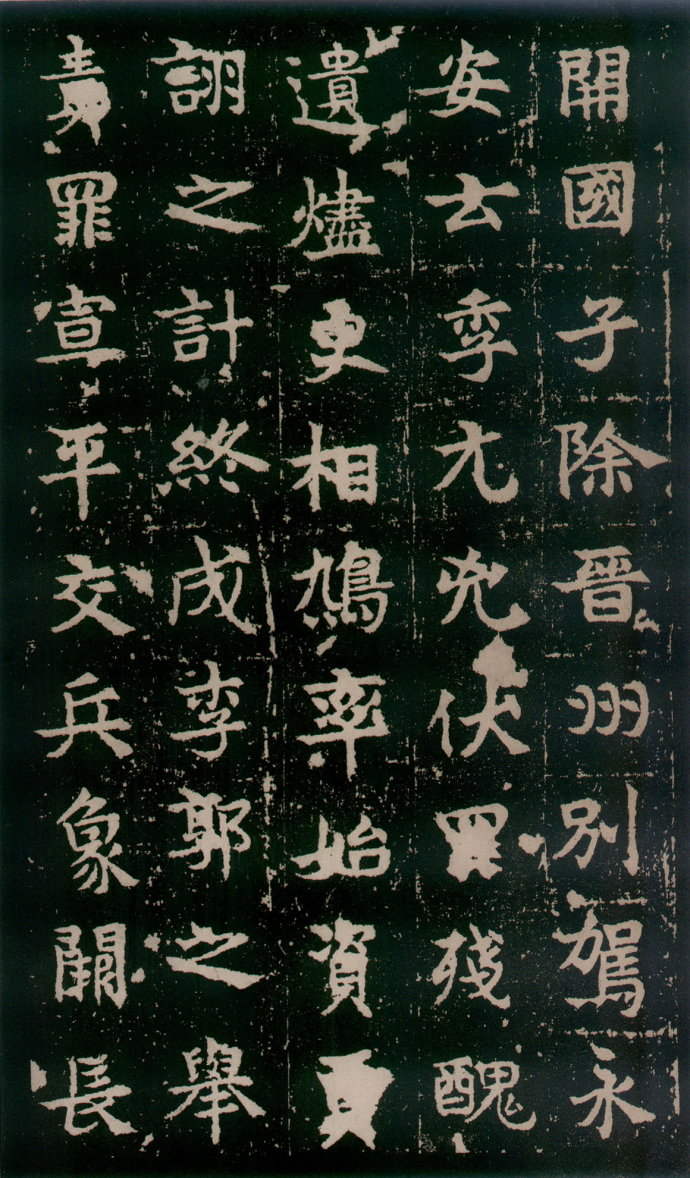 開國子除晉州別駕永
安云季元兇伏罪殘醜
遺燼更相鳩率始資賈
詡之計終成李郭之舉
責罪宣平交兵象闕長